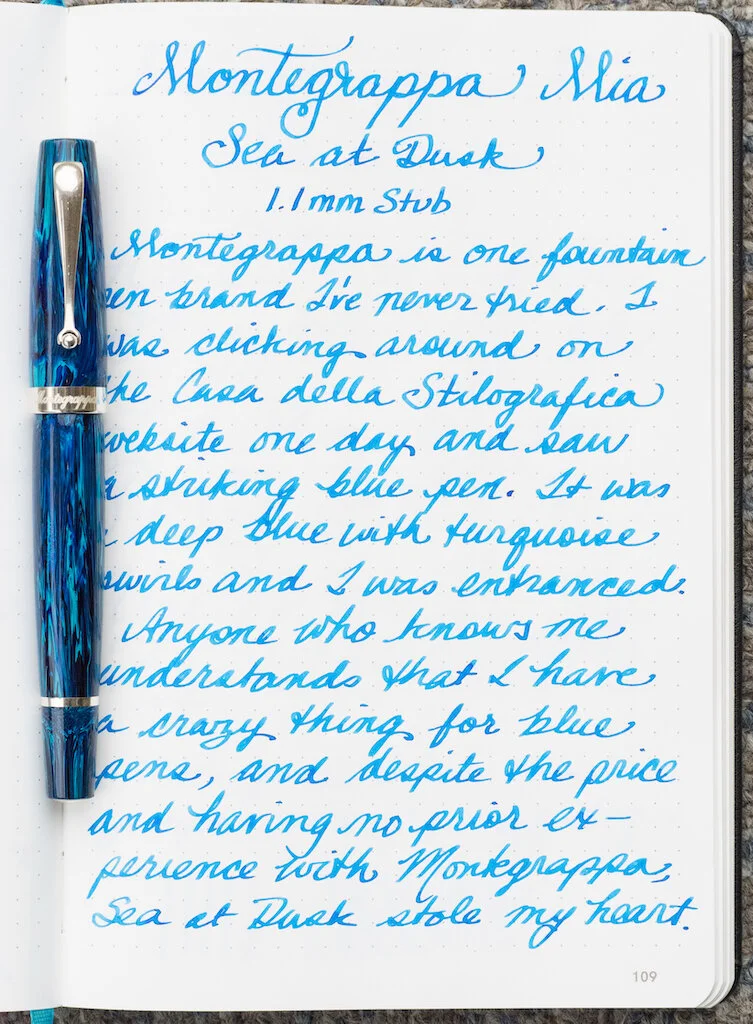 Montegrappa Mia
Sea at Dusk
1.1mm Stub
Montegrappa is one fountain
pen brand I've never tried. I
was clicking around on
the Casa della Stilografica
website one day and saw
a striking blue pen. It was
a deep blue with turquoise
swirls and I was entranced.
Anyone who knows me
understands that I have
a crazy thing for blue
pens, and despite the price
and having no prior ex-
perience with Montegrappa,
Sea at Dusk stole my heart.
109
Montegrappa